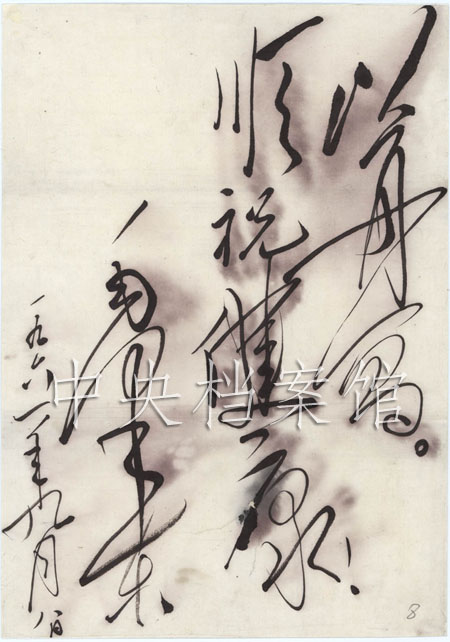 以再写。
顺祝健康!
毛泽东
一九六一年九月八日
中央档案馆
8